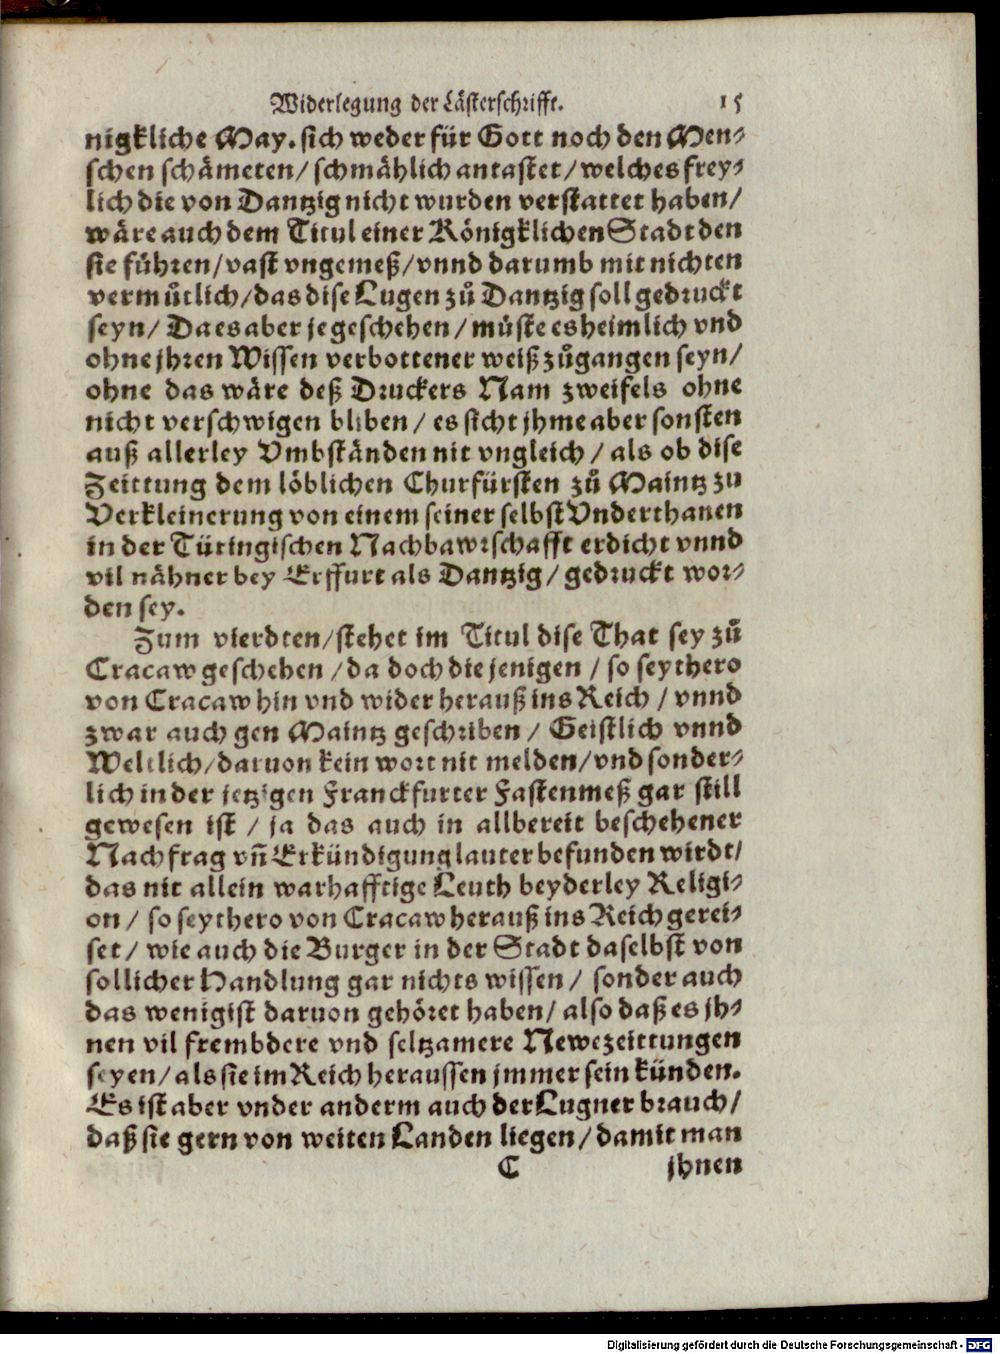 Widerlegung der Lästerschrifft. 15
nigkliche May. sich weder für Gott noch den Men-
schen schämeten/ schmählich antastet/ welches frey-
lich die von Dantzig nicht wurden verstattet haben/
wäre auch dem Titul einer Königklichen Stadt den
sie führen/ vast vngemeß/ vnnd darumb mit nichten
vermůtlich/ das dise Lugen zů Dantzig soll gedruckt
seyn/ Da es aber je geschehen/ müste es heimlich vnd
ohne jhren Wissen verbottener weiß zůgangen seyn/
ohne das wäre deß Druckers Nam zweifels ohne
nicht verschwigen bliben/ es sicht jhme aber sonsten
auß allerley Vmbständen nit vngleich/ als ob dise
Zeittung dem löblichen Churfürsten zů Maintz zu
Verkleinerung von einem seiner selbst Vnderthanen
in der Türingischen Nachbawrschafft erdicht vnnd
vil nähner bey Erffurt als Dantzig/ gedruckt wor-
den sey.
Zum vierdten/ stehet im Titul dise That sey zů
Cracaw geschehen/ da doch die jenigen/ so seythero
von Cracaw hin vnd wider herauß ins Reich/ vnnd
zwar auch gen Maintz geschriben/ Geistlich vnnd
Weltlich/ daruon kein wort nit melden/ vnd sonder-
lich in der jetzigen Franckfurter Fastenmeß gar still
gewesen ist/ ja das auch in allbereit beschehener
Nachfrag vñ Erkündigung lauter befunden wirdt/
das nit allein warhafftige Leuth beyderley Religi-
on/ so seythero von Cracaw herauß ins Reich gerei-
set/ wie auch die Burger in der Stadt daselbst von
sollicher Handlung gar nichts wissen/ sonder auch
das wenigist daruon gehöret haben/ also daß es jh-
nen vil frembdere vnd seltzamere Newezeittungen
seyen/ als sie im Reich heraussen jmmer sein künden.
Es ist aber vnder anderm auch der Lugner brauch/
daß sie gern von weiten Landen liegen/ damit man
C jhnen
Digitalisierung gefördert durch die Deutsche Forschungsgemeinschaft - DFG